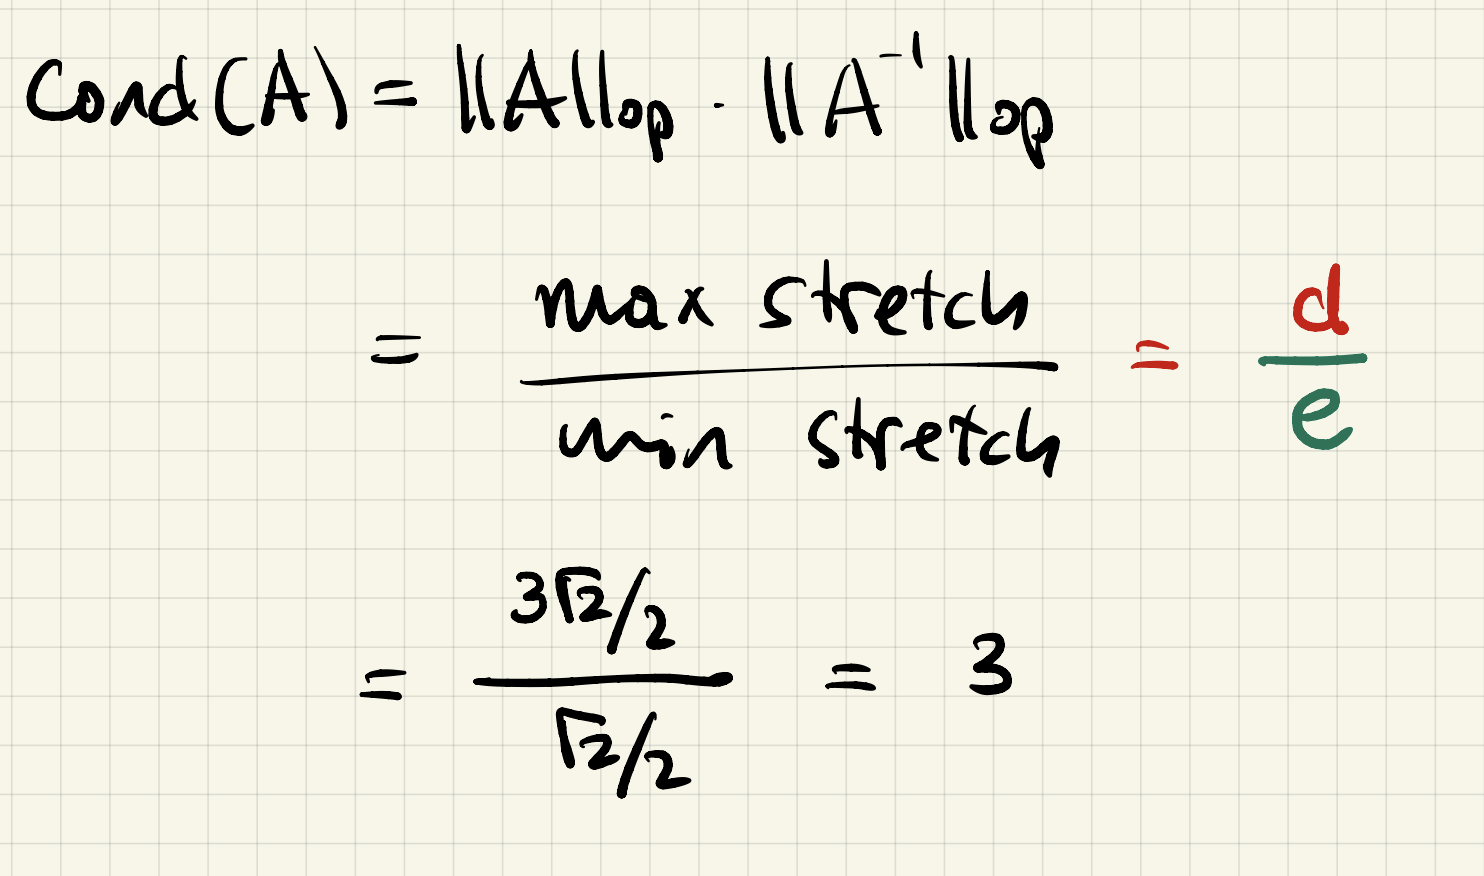 Cond(A) = ||A||op · ||A⁻¹||op
= max stretch / min stretch = d / e
= 3√2/2 / √2/2 = 3